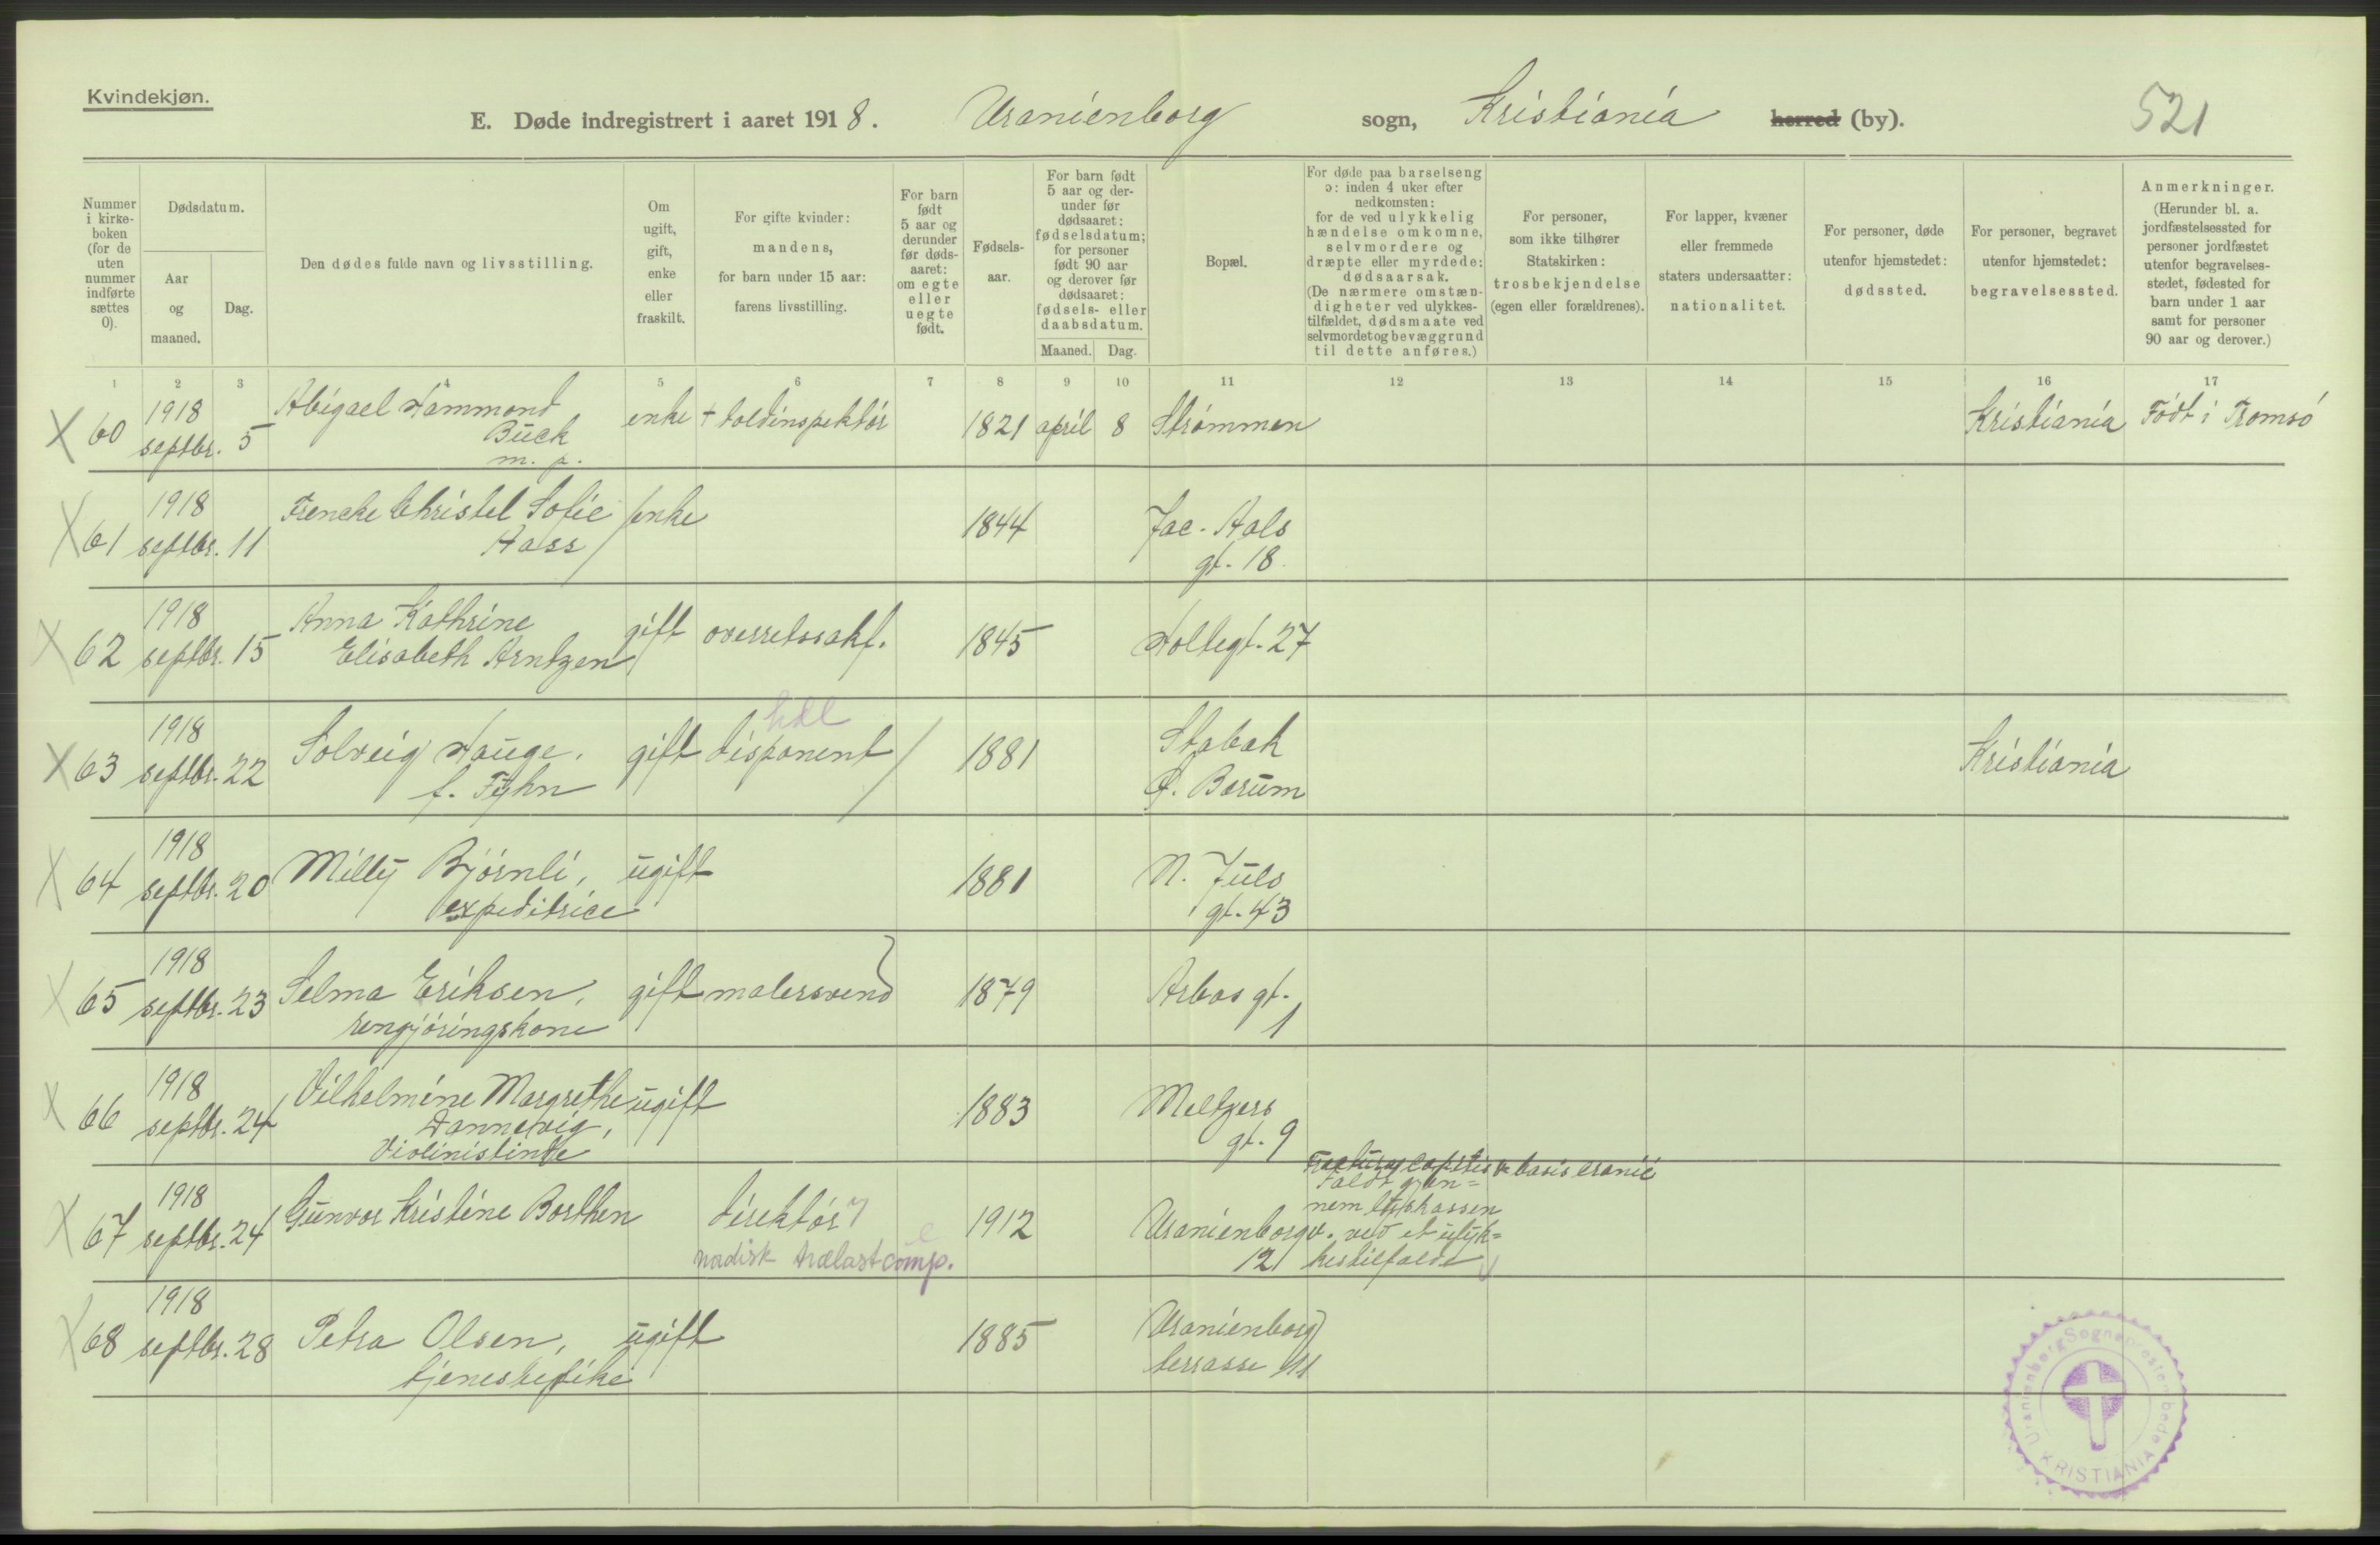 Kvindekjøn.
E. Døde indregistrert i aaret 1918. Uranienborg sogn, Kristiania herred (by). 521
Nummer i kirke-boken (for de uten nummer indførte sættes 0).
Dødsdatum.
Aar og maaned.
Dag.
Den dødes fulde navn og livsstilling.
Om ugift, gift, enke eller fraskilt.
For gifte kvinder: mandens, for barn under 15 aar: farens livsstilling.
For barn født 5 aar og derunder før døds-aaret: om egte eller uegte født.
Fødsels-aar.
For barn født 5 aar og der-under før dødsaaret: fødselsdatum; for personer født 90 aar og derover før dødsaaret: fødsels- eller daabsdatum.
Maaned. Dag.
Bopæl.
For døde paa barselseng ɔ: inden 4 uker efter nedkomsten: for de ved ulykkelig hændelse omkomne, selvmordere og dræpte eller myrdede: dødsaarsak. (De nærmere omstæn-digheter ved ulykkes-tilfældet, dødsmaate ved selvmordet og bevæggrund til dette anføres.)
For personer, som ikke tilhører Statskirken: trosbekjendelse (egen eller forældrenes).
For lapper, kvæner eller fremmede staters undersaatter: nationalitet.
For personer, døde utenfor hjemstedet: dødssted.
For personer, begravet utenfor hjemstedet: begravelsessted.
Anmerkninger. (Herunder bl. a. jordfæstelsessted for personer jordfæstet utenfor begravelses-stedet, fødested for barn under 1 aar samt for personer 90 aar og derover.)
1 2 3 4 5 6 7 8 9 10 11 12 13 14 15 16 17
X 60 1918 septbr. 5 Abigael Hammond Buck m. p. enke + toldinspektör 1821 april 8 Strömmen Kristiania Födt i Tromsö
X 61 1918 septbr. 11 Frencke Christel Sofie Hass enke 1844 Jac. Aals gt. 18.
X 62 1918 septbr. 15 Anna Kathrine Elisabeth Arntzen gift overretssakf. 1845 Holtegt. 27
X 63 1918 septbr. 22 Solveig Hauge, f. Fyhn gift hdl disponent 1881 Stabæk Ø. Bærum Kristiania
X 64 1918 septbr. 20 Milly Björnli, expeditrice ugift 1881 N. Juls gt. 43
X 65 1918 septbr. 23 Selma Eriksen, rengjöringskone gift malersvend 1879 Arbos gt. 1
X 66 1918 septbr. 24 Vilhelmine Margrethe Dannevig, Violinistinde ugift 1883 Meltzers gt. 9
X 67 1918 septbr. 24 Gunvor Kristine Borthen direktör e nordisk trælastcomp. 1912 Uranienborgv. 12 Fractura capitis & basis cranii Faldt gjen=nem lyskassen ved et ulyk=kestilfælde
X 68 1918 septbr. 28 Petra Olsen, tjenestepike ugift 1885 Uranienborg terrasse 11
Uranienborg Sogneprestembede KRISTIANIA